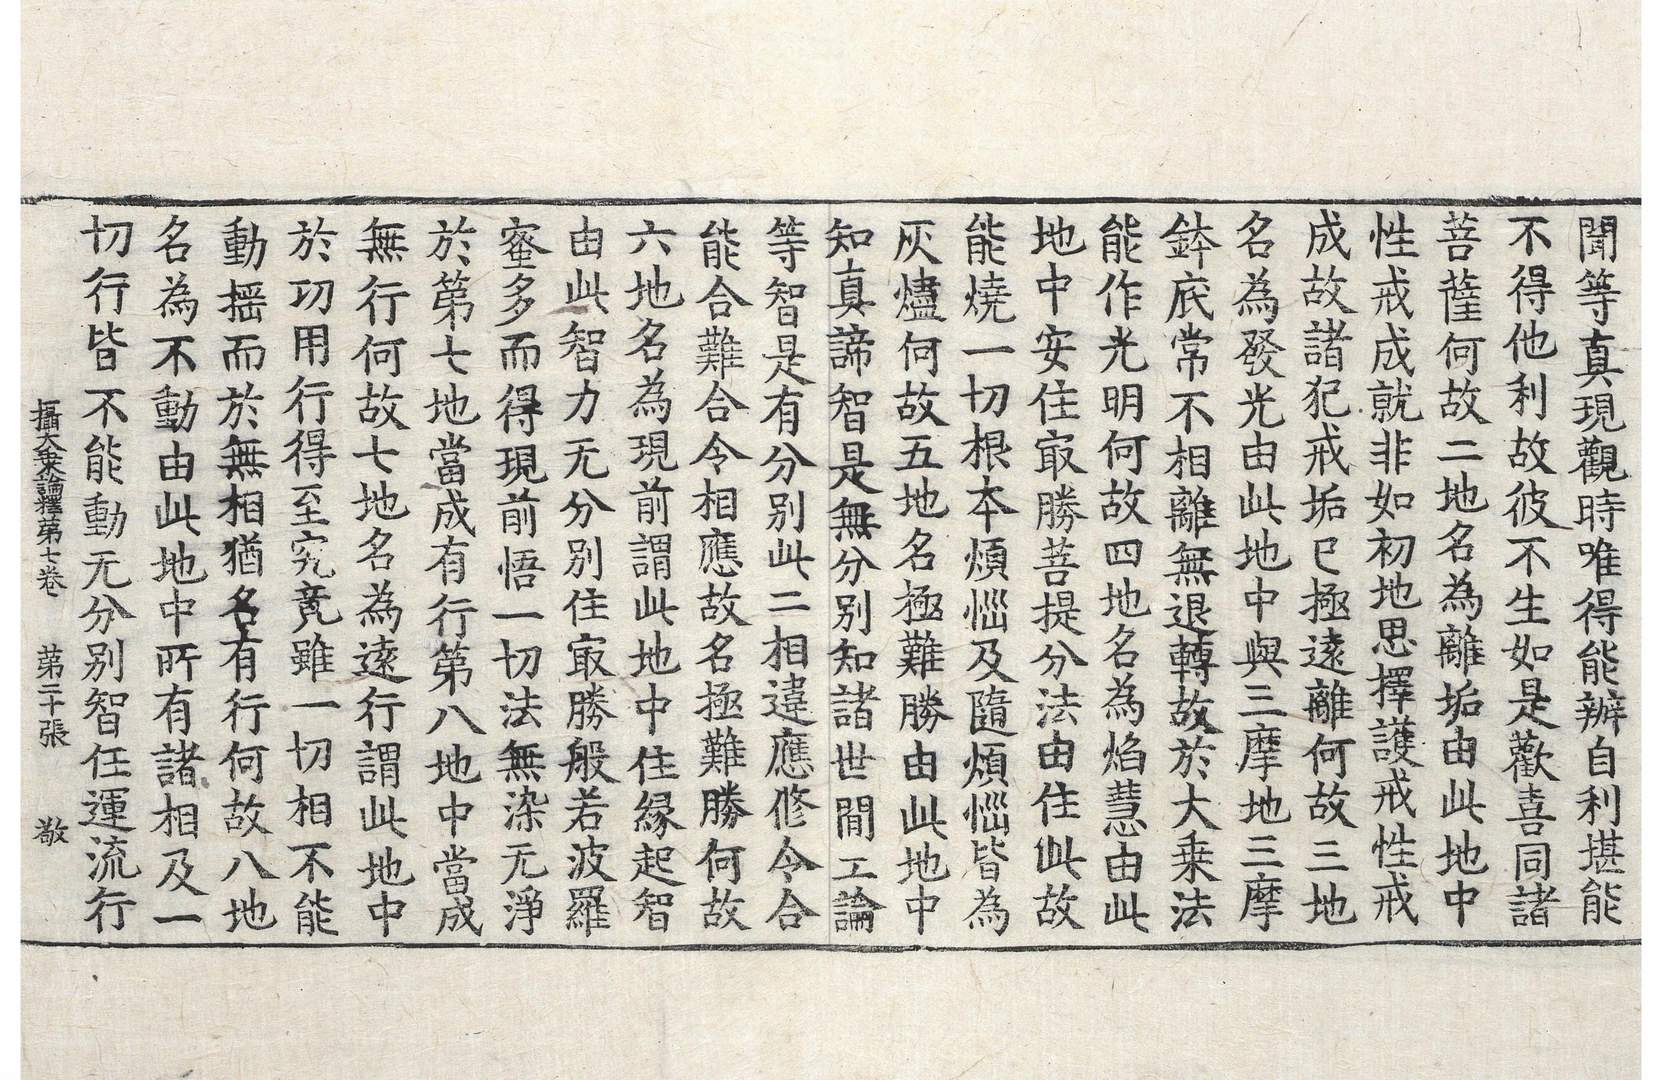 聞等真現觀時唯得能辦自利堪能
不得他利故彼不生如是歡喜同諸
菩薩何故二地名為離垢由此地中
性戒成就非如初地思擇護戒性戒
成故諸犯戒垢已極遠離何故三地
名為發光由此地中與三摩地三摩
鉢底常不相離無退轉故於大乗法
能作光明何故四地名為焰慧由此
地中安住㝡勝菩提分法由住此故
能燒一切根本煩惱及隨煩惱皆為
灰燼何故五地名極難勝由此地中
知真諦智是無分别知諸世間工論
等智是有分别此二相違應修令合
能合難合令相應故名極難勝何故
六地名為現前謂此地中住縁起智
由此智力无分别住㝡勝般若波羅
蜜多而得現前悟一切法無染无淨
於第七地當成有行第八地中當成
無行何故七地名為遠行謂此地中
於功用行得至究竟雖一切相不能
動揺而於無相猶名有行何故八地
名為不動由此地中所有諸相及一
切行皆不能動无分别智任運流行
攝大乗論釋第七卷　第二十張　敬